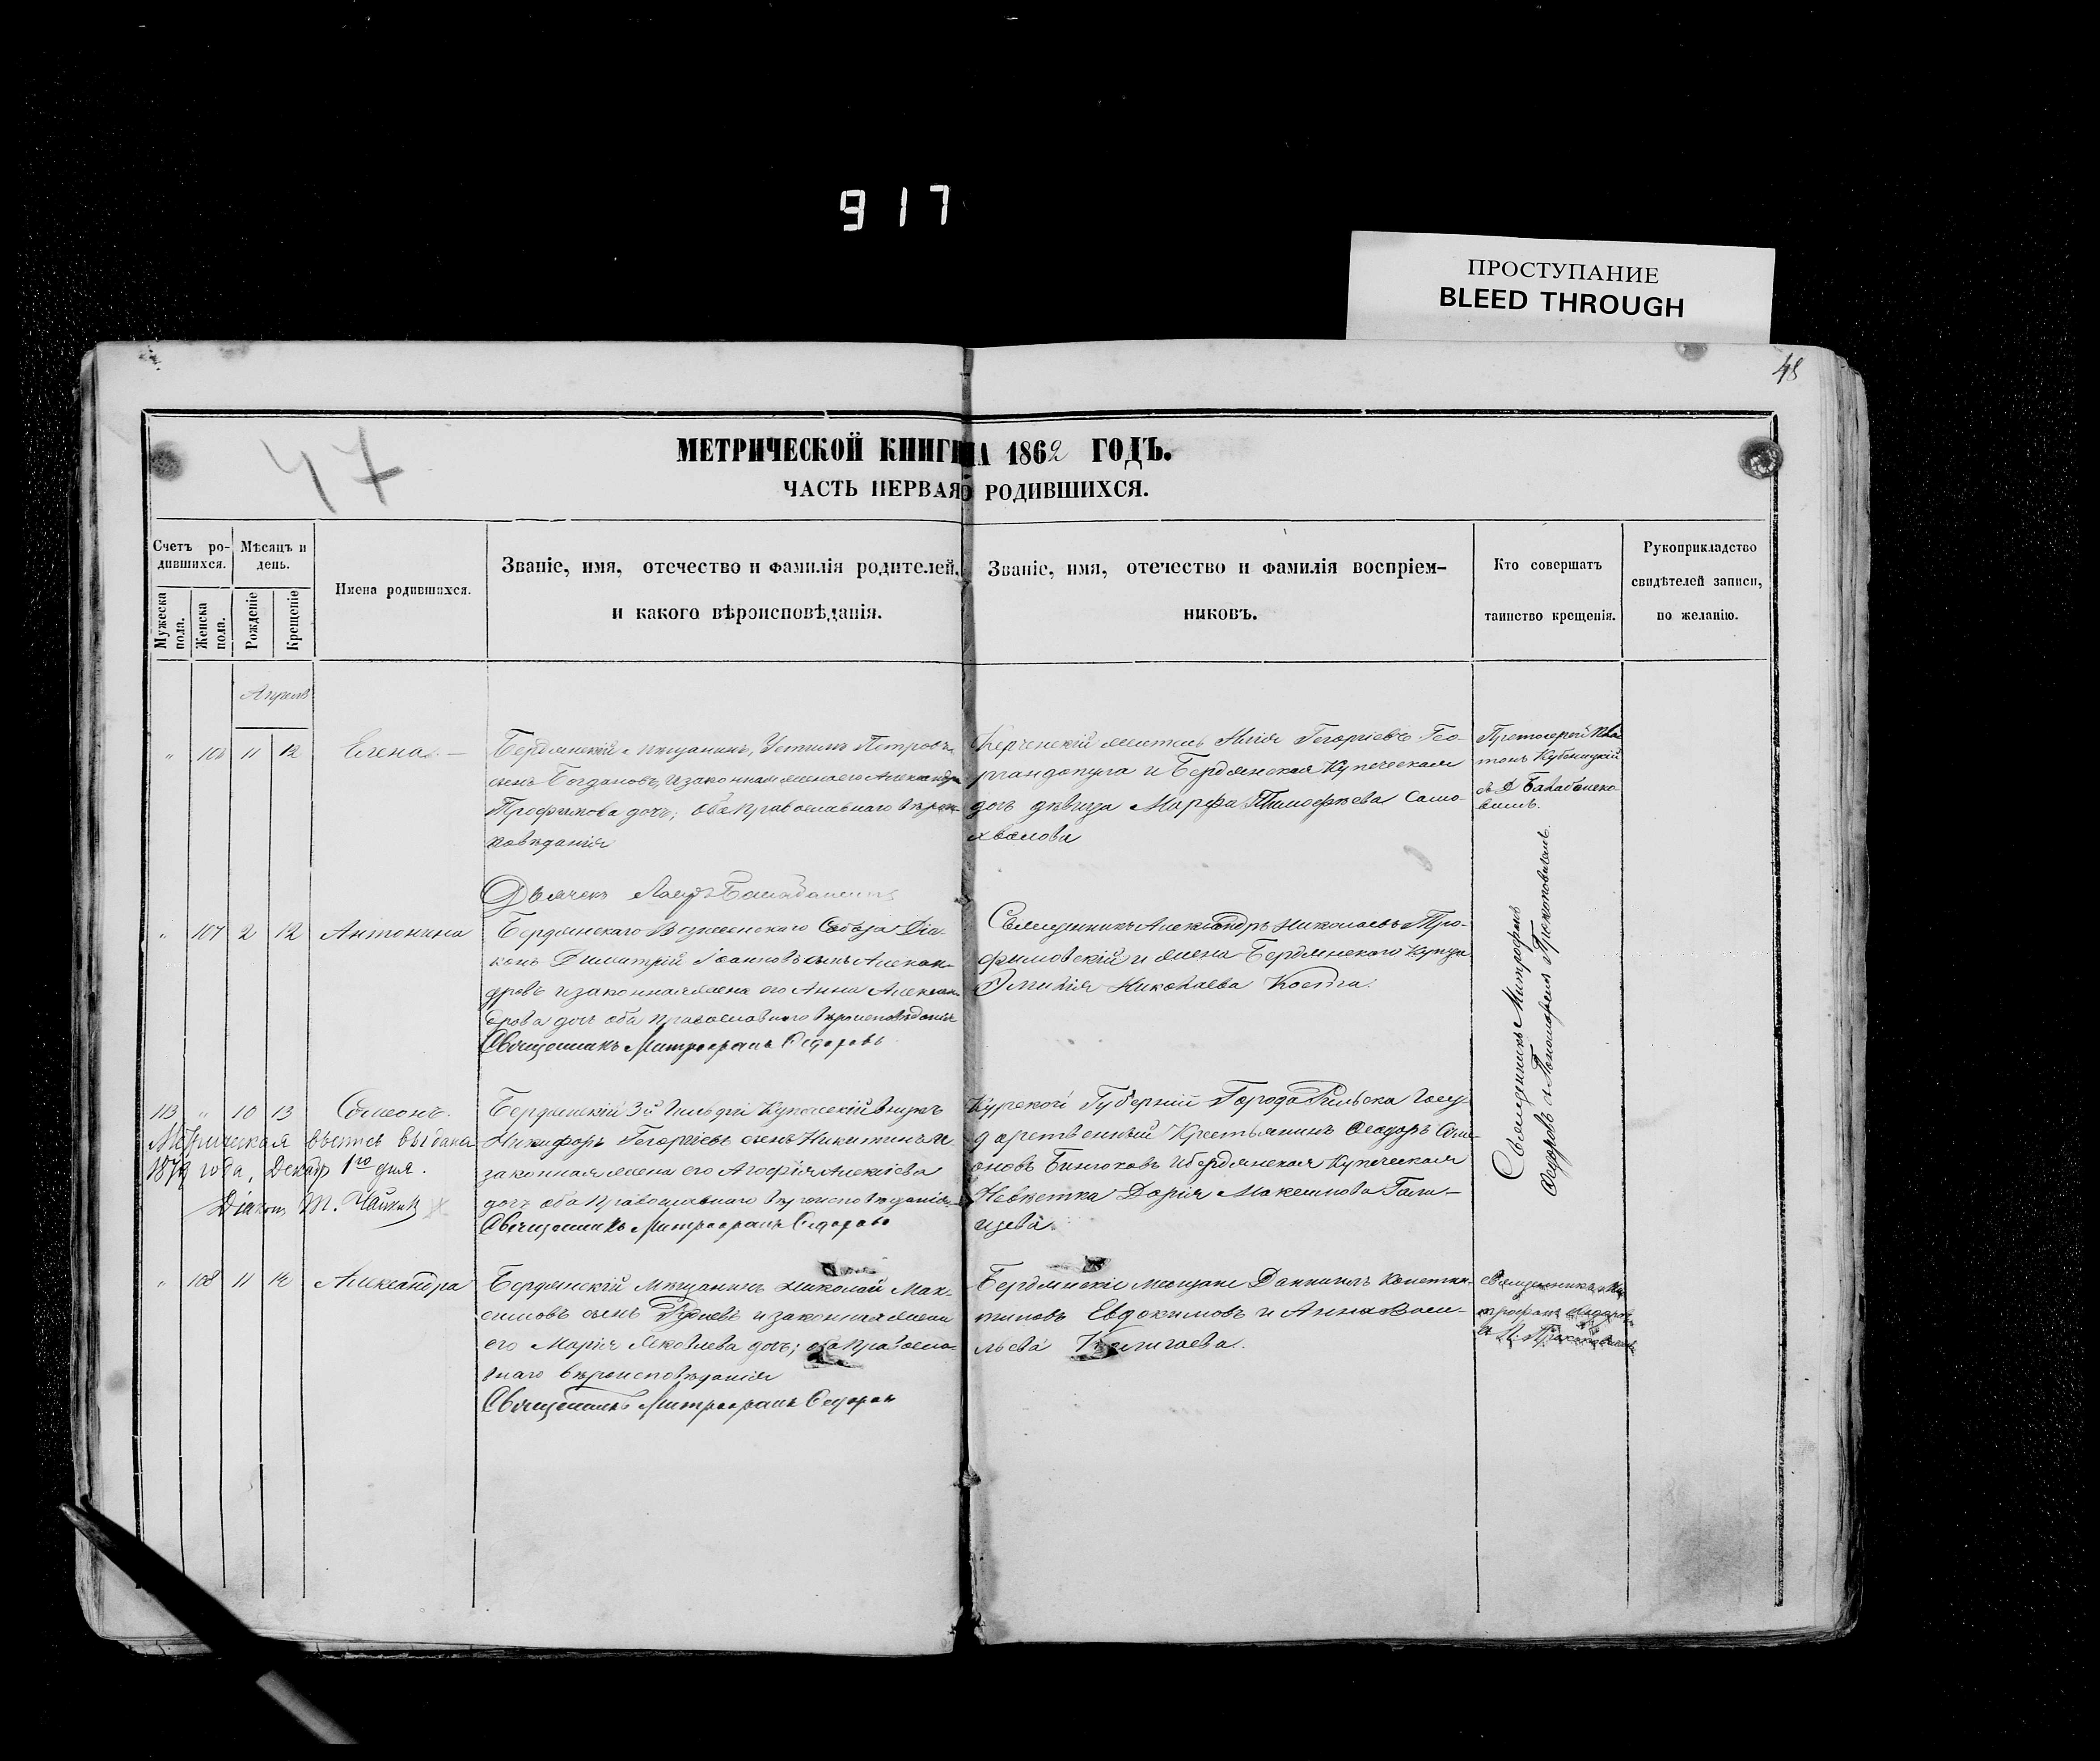 917
ПРОСТУПАНИЕ
BLEED THROUGH
48
47
МЕТРИЧЕСКОЙ КНИГИ НА 1862 ГОДЪ.
ЧАСТЬ ПЕРВАЯ О РОДИВШИХСЯ.
Счетъ ро-
дившихся.
Мѣсяцъ и
день.
Имена родившихся.
Званіе, имя, отечество и фамилія родителей,
и какого вѣроисповѣданія.
Званіе, имя, отечество и фамилія воспріем-
никовъ.
Кто совершатъ
таинство крещенія.
Рукоприкладство
свидѣтелей записи,
по желанію.
Мужеска
пола.
Женска
пола.
Рожденіе
Крещеніе
Апрель
" 106 11 12 Елена
Бердянскій мѣщанинъ, Устинъ Петровъ
сынъ Богдановъ, и законная жена его Александра
Трофимова дочь; оба православнаго вѣроис-
повѣданія
Керченскій житель Илія Георгіевъ Гео-
ргандопуло и Бердянская Купеческая
дочь дѣвица Марфа Тимофѣева Само-
хвалова
Протоіерей
Кубеницкій
съ Д. Балабанено-
вымъ.
Дьячекъ
" 107 2 12 Антонина
Бердянскаго Вознесенскаго Собора Діа-
конъ Димитрій Іоанновъ сынъ Алексан-
дровъ и законная жена его Анна Алексан-
дрова дочь оба православнаго вѣроисповѣданія
Священникъ Митрофанъ Ѳедоровъ
Священникъ Александръ Николаевъ Тро-
фимовскій и жена Бердянскаго Купца
Эмилія Николаева
Священникъ Митрофанъ
Ѳедоровъ съ Пономаремъ Прокоповичемъ.
113 " 10 13 Симеонъ.
Бердянскій 3й Гильдіи Купеческій внукъ
Никифоръ Георгіевъ сынъ Никитинъ и
законная жена его Агафія Алексіева
дочь оба Православнаго вѣроисповѣданія
Священникъ Митрофанъ Ѳедоровъ
Метрическая выпись выдана
года, Декабр 1го дня.
Діаконъ
Курской Губерніи Города Рыльска Госу-
дарственный Крестьянинъ Ѳеодоръ Сим-
оновъ и Бердянская Купеческая
Невѣстка Дарія Максимова Гали-
цева.
" 108 11 12 Александра
Бердянскій Мѣщанинъ Николай Мак-
симовъ сынъ и законная жена
его Марія Яковлева дочь; оба Правосла-
внаго вѣроисповѣданія
Священникъ Митрофанъ Ѳедоровъ
Бердянскіе мещане Даниилъ Констан-
тиновъ Евдокимовъ и Анна Васи-
льева
Священникъ Ми-
трофанъ Ѳедоровъ
съ П. Прокоповичемъ